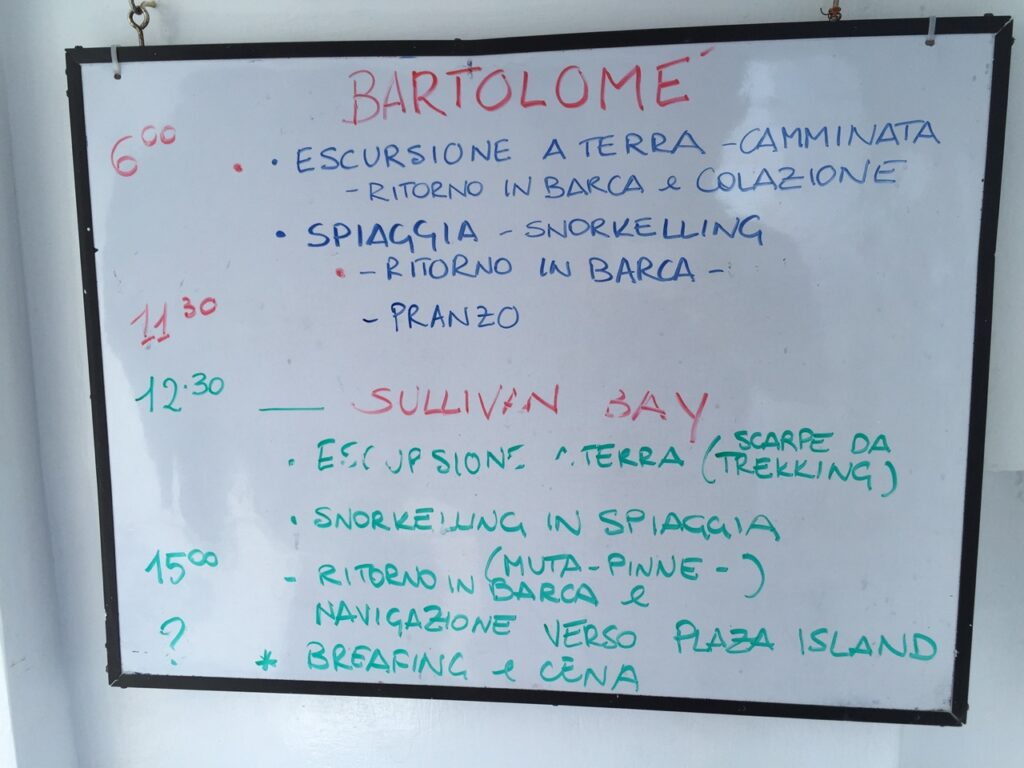 BARTOLOMÉ
6⁰⁰ • • ESCURSIONE A TERRA - CAMMINATA
- RITORNO IN BARCA e COLAZIONE
• SPIAGGIA - SNORKELLING
• - RITORNO IN BARCA -
11³⁰ - PRANZO
12.30 — SULLIVAN BAY
• ESCURSIONE A TERRA (SCARPE DA
TREKKING)
• SNORKELLING IN SPIAGGIA
(MUTA - PINNE - )
15⁰⁰ - RITORNO IN BARCA e
NAVIGAZIONE VERSO PLAZA ISLAND
? * BREAFING e CENA